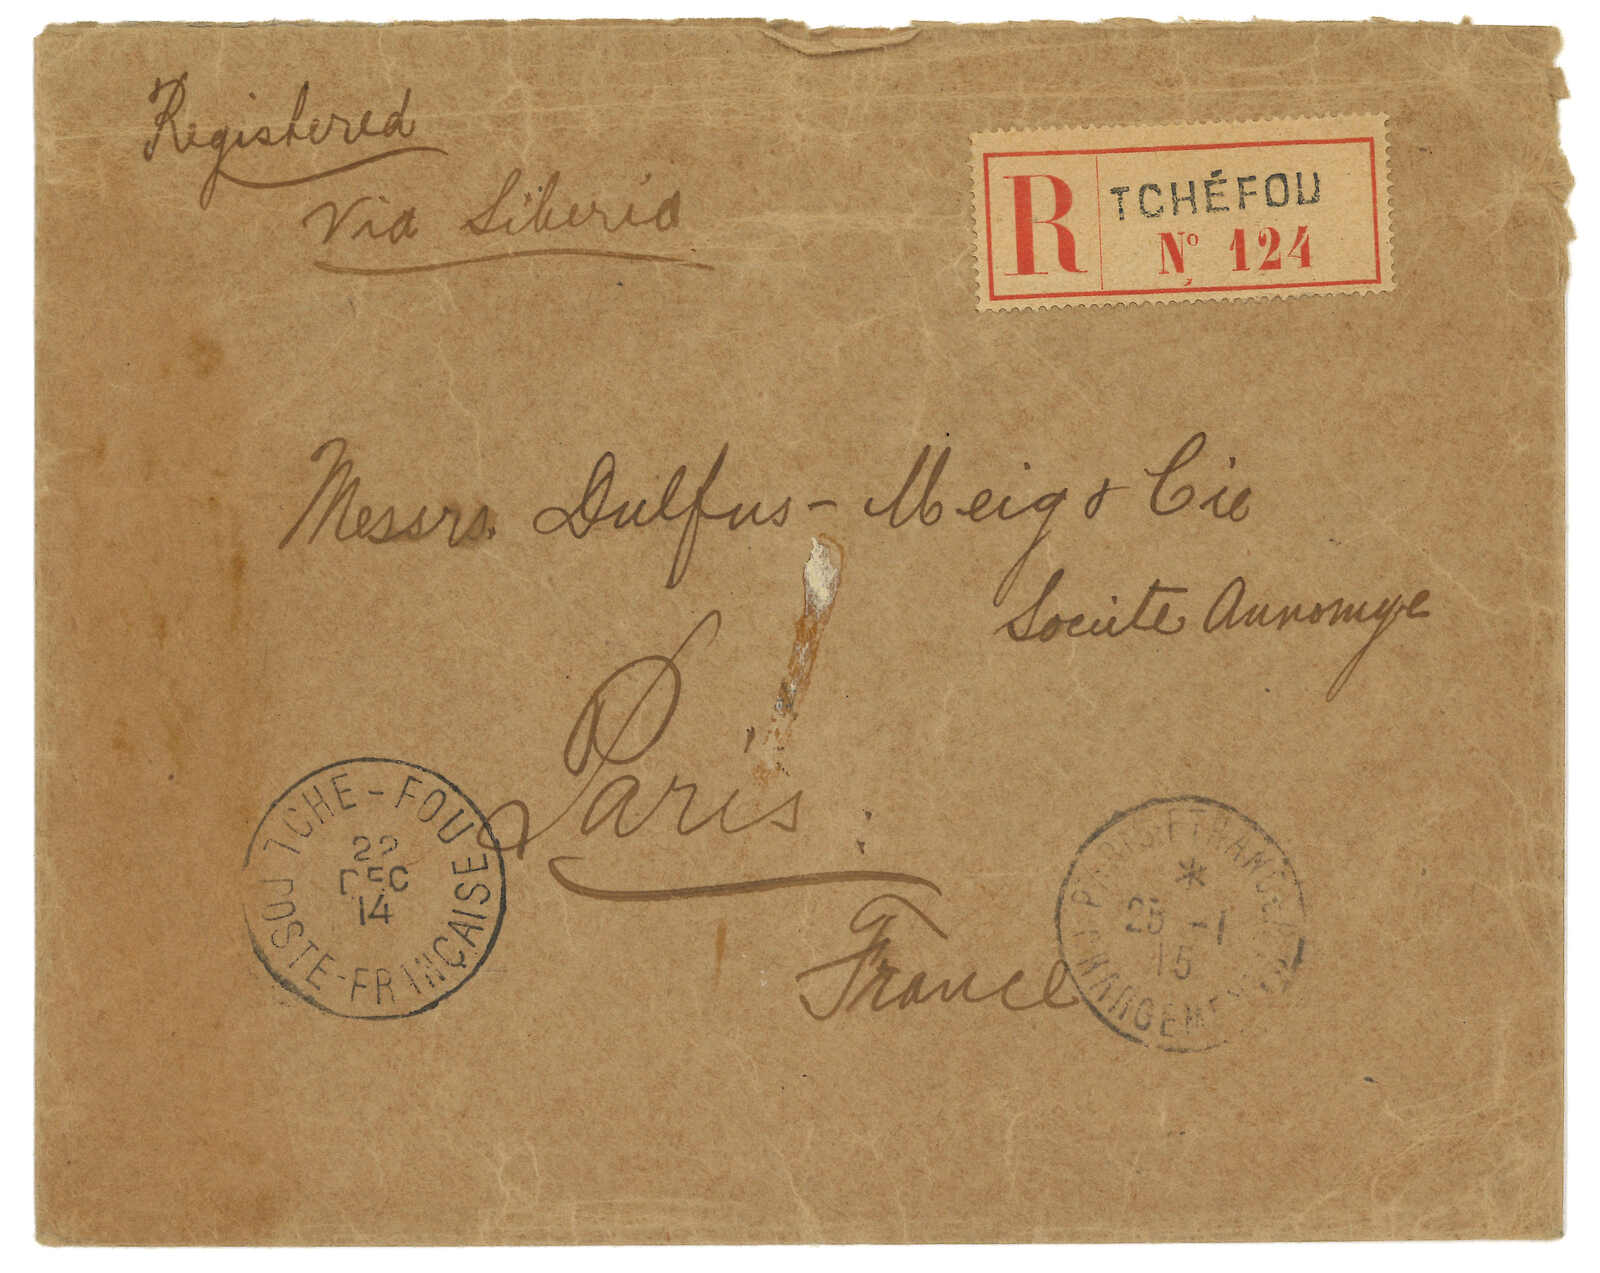 Registered
Via Siberia
R TCHÉFOU
Nº 124
Messrs. Dulfus - Meig & Cie
Sociite Annomye
Paris
France
TCHE-FOU
DEC
14
POSTE-FRANÇAISE
PARIS-ETRANGER
*
25 -1
15
CHARGEMENTS